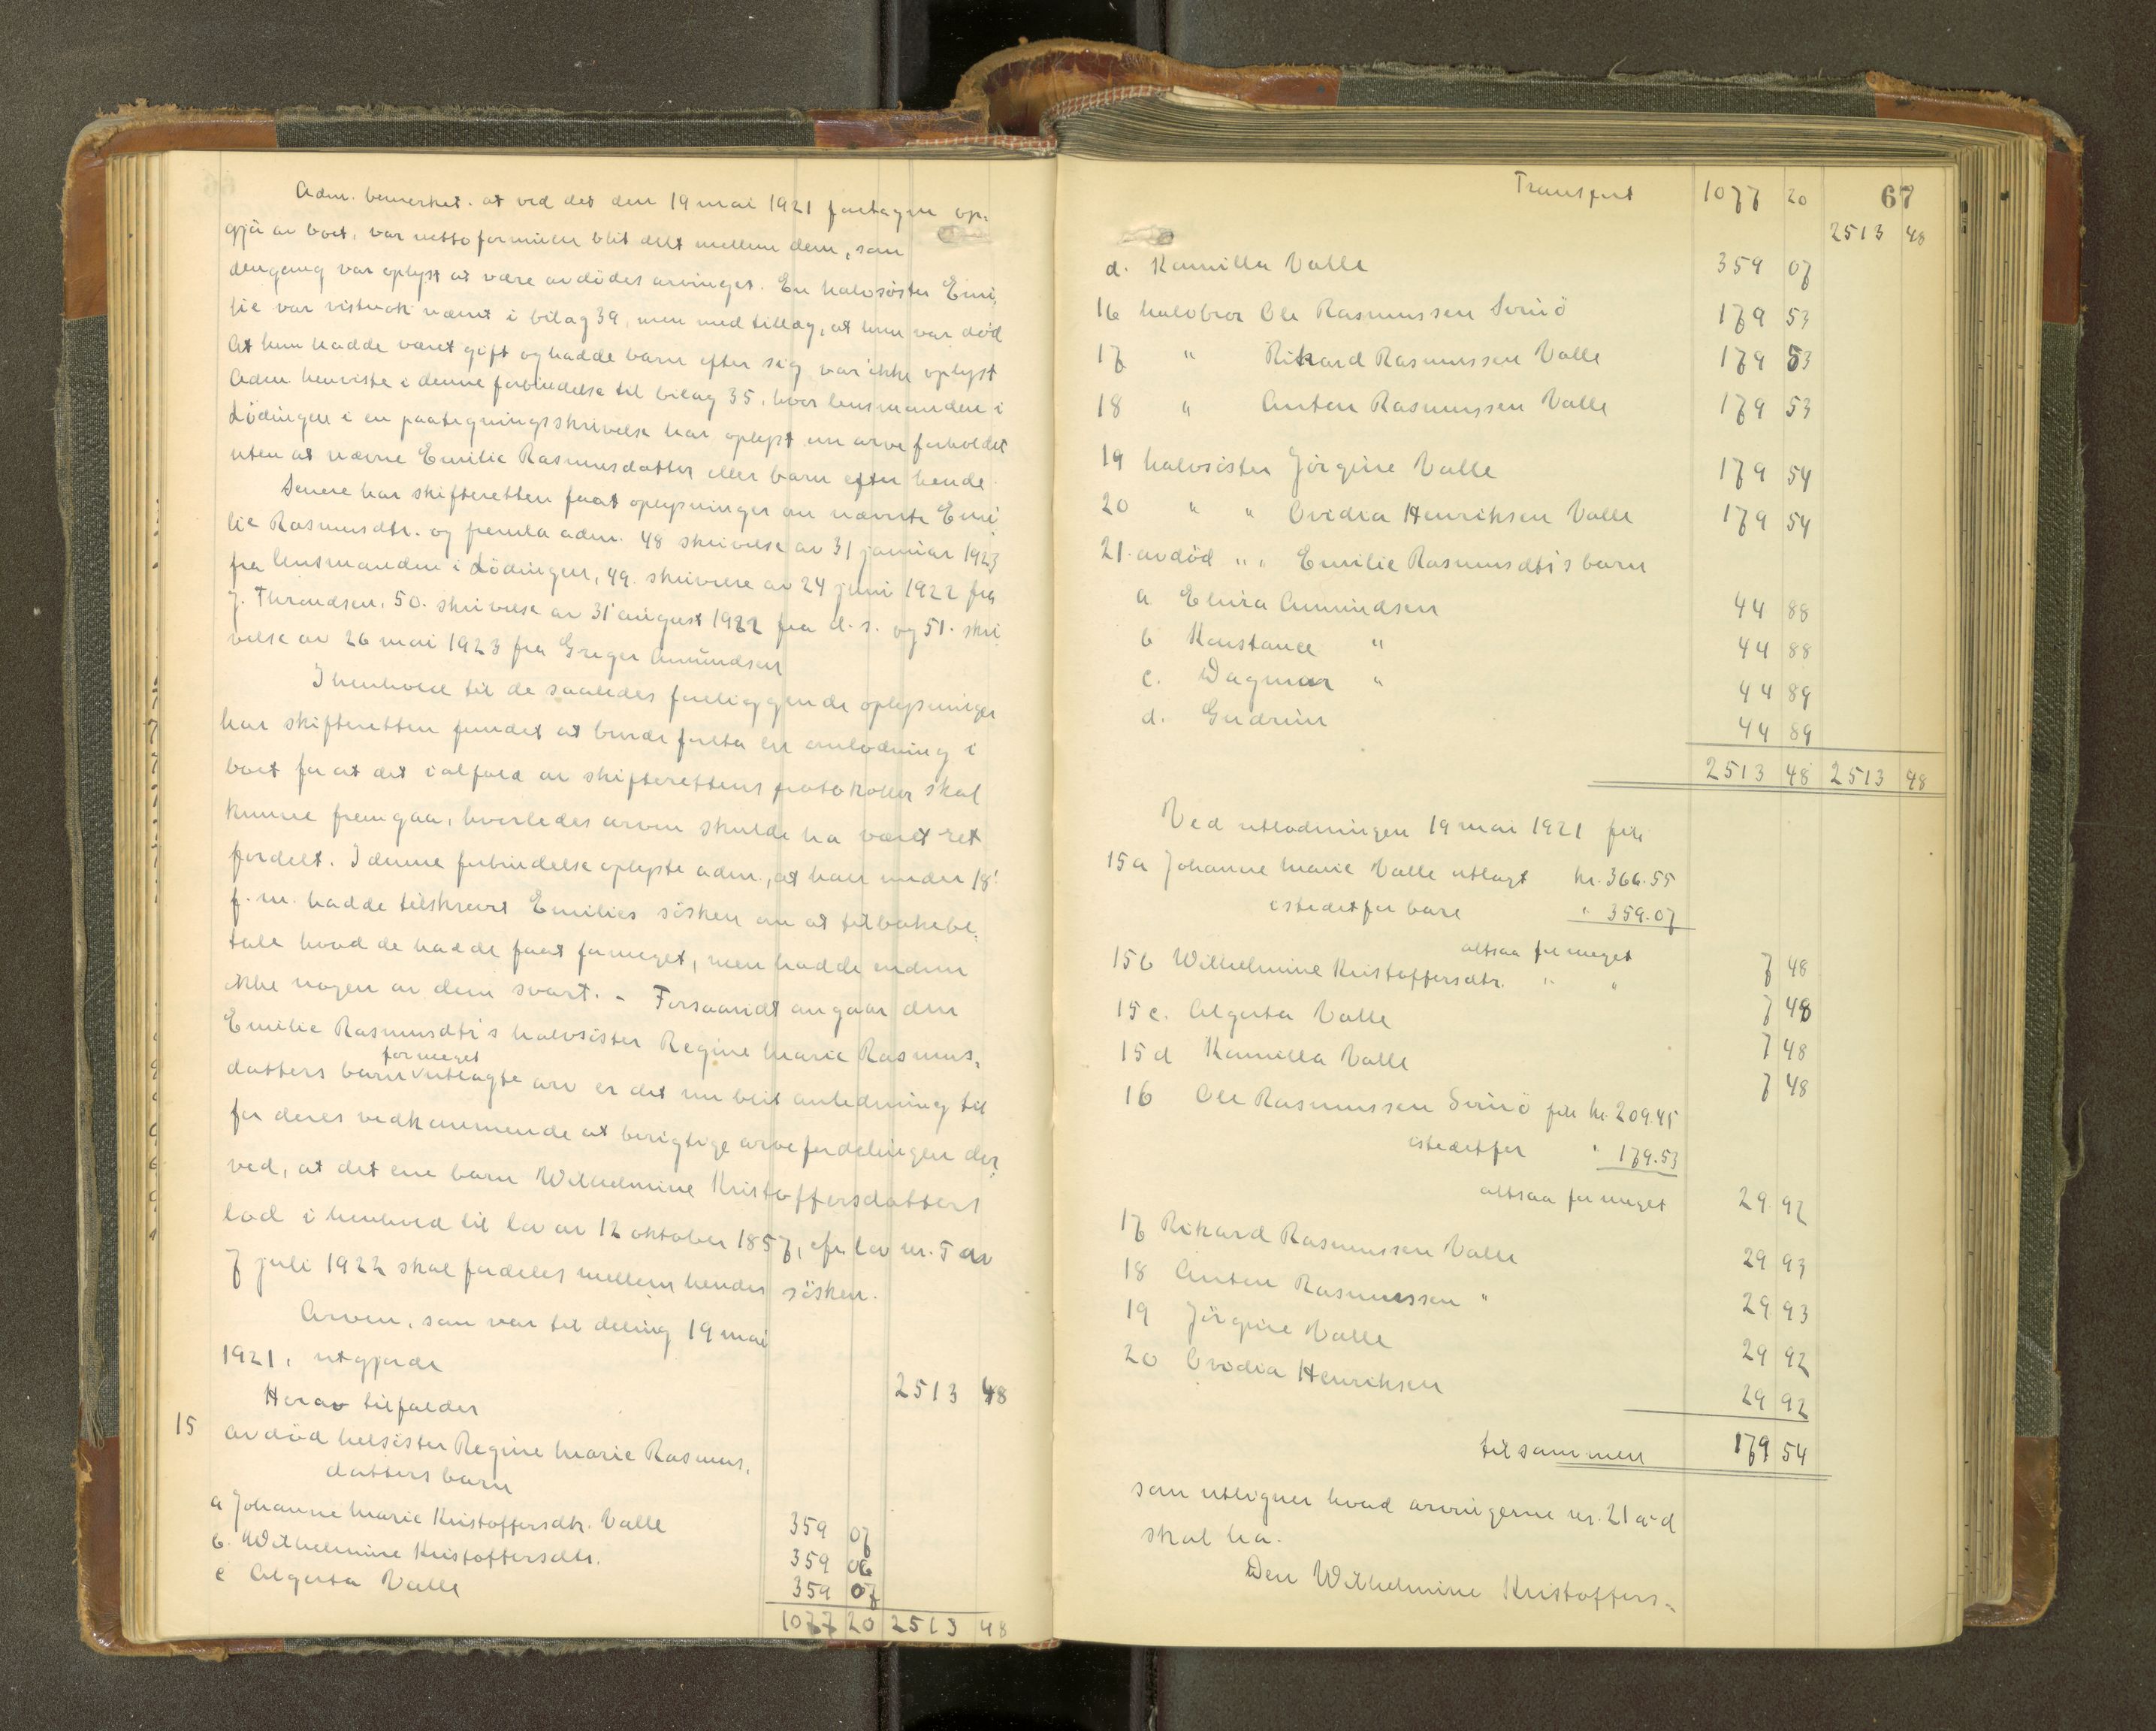 Adm. bemerket, at ved det den 19 mai 1921 foretagne op-
gjør av boet, var nettoformuen blit delt mellem dem, som
dengang var oplyst at være avdødes arvinger. En halvsøster Emi-
lie var vistnok nævnt i bilag 39, men med tillæg, at hun var død
At hun hadde været gift og hadde barn efter sig var ikke oplyst
Adm. henviste i denne forbindelse til bilag 35, hvor lensmanden i
Lödingen i en paategningsskrivelse har oplyst om arveforholdet
uten at nævne Emilie Rasmusdatter eller barn efter hende.
Senere har skifteretten faat oplysninger om nævnte Emi
lie Rasmusdtr. og fremla adm. 48 skrivelse av 31 januar 1923
fra lensmanden i Lödingen, 49. skrivelse av 24 juni 1922 fra
J. Throndsen, 50. skrivelse av 31 august 1922 fra d. s. og 51. skri
velse av 26 mai 1923 fra Greger Amundsen
I henhold til de saaledes foreliggende oplysninger
har skifteretten fundet at burde foreta en omlodning i
boet for at det ialfald av skifterettens protokoller skal
kunne fremgaa, hvorledes arven skulde ha været ret
fordelt. I denne forbindelse oplyste adm., at han under 18'
f. m. hadde tilskrevet Emilies søsken om at tilbakebe-
tale hvad de hadde faat formeget, men hadde endnu
ikke nogen av dem svart. - Forsaavidt angaar den
Emilie Rasmusdtr's halvsøster Regine Marie Rasmus-
formeget
datters barn utlagte arv er det nu blit anledning til
for deres vedkommende at berigtige arvefordelingen der-
ved, at det ene barn Wilhelmine Kristoffersdatters
lod i henhold til lov av 12 oktober 1857, cfr. lov nr. 5 av
7 juli 1922 skal fordeles mellem hendes søsken.
Arven, som var til deling 19 mai
1921, utgjorde 2513 48
Herav tilfalder
15 avdød helsøster Regine Marie Rasmus-
datters barn
a Johanne Marie Kristoffersdtr. Valle 359 07
b. Wilhelmine Kristoffersdtr. 359 06
c Algerta Valle 359 07
1077 20 2513 48
67
Transport 1077 20
2513 48
d. Kamilla Valle 359 07
16 halvbror Ole Rasmussen Svinö 179 53
17 " Rikard Rasmussen Valle 179 53
18 " Anton Rasmussen Valle 179 53
19 halvsöster Jörgine Valle 179 54
20 " " Ovidia Henriksen Valle 179 54
21. avdöd " " Emilie Rasmusdtr's barn
a Elvira Amundsen 44 88
b Konstance " 44 88
c. Dagmar " 44 89
d. Gudrun 44 89
2513 48 2513 48
Ved utlodningen 19 mai 1921 fik
15 a Johanne Marie Valle utlagt kr. 366.55
istedetfor bare " 359.07
altsaa for meget 7 48
15 b Wilhelmine Kristoffersdtr. " " 7 48
15 c. Algerta Valle 7 48
15 d Kamilla Valle 7 48
16 Ole Rasmussen Svinö fik kr. 209.45
istedetfor " 179.53
altsaa for meget 29 92
17 Rikard Rasmussen Valle 29 93
18 Anton Rasmussen " 29 93
19 Jörgine Valle 29 92
20 Ovidia Henriksen 29 92
tilsammen 179 54
som utligner hvad arvingerne nr. 21 a-d
skal ha.
Den Wilhelmine Kristoffers-